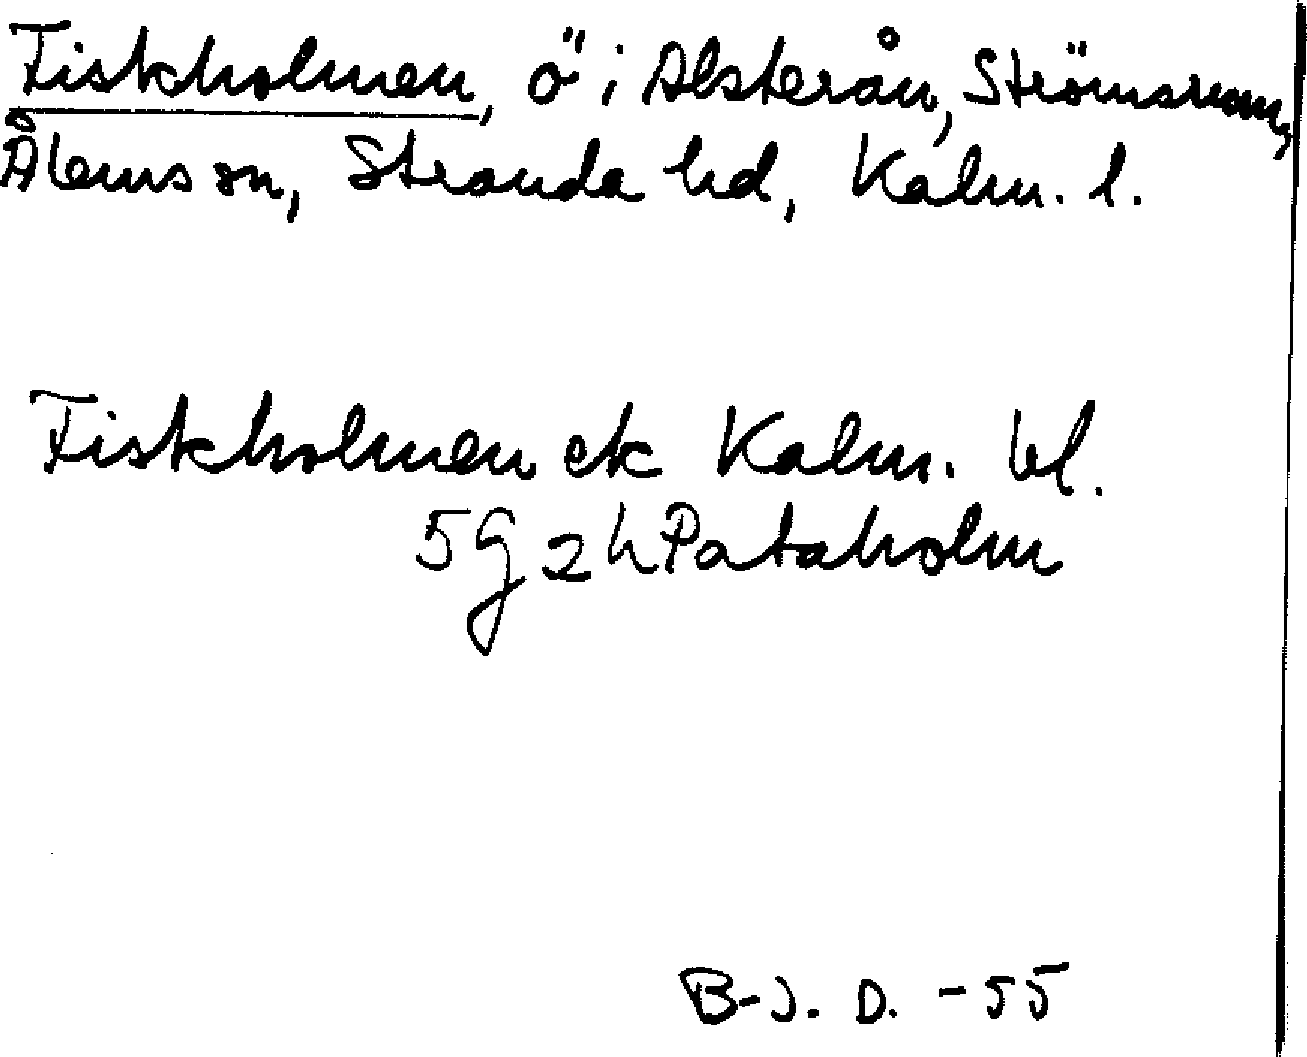 Fiskholmen, ö i Alsterån, Strömsrum,
Ålems sn, Stranda hd, Kalm. l.
Fiskholmen ek Kalm. bl.
5G 2h Pataholm
B-J. D. -55